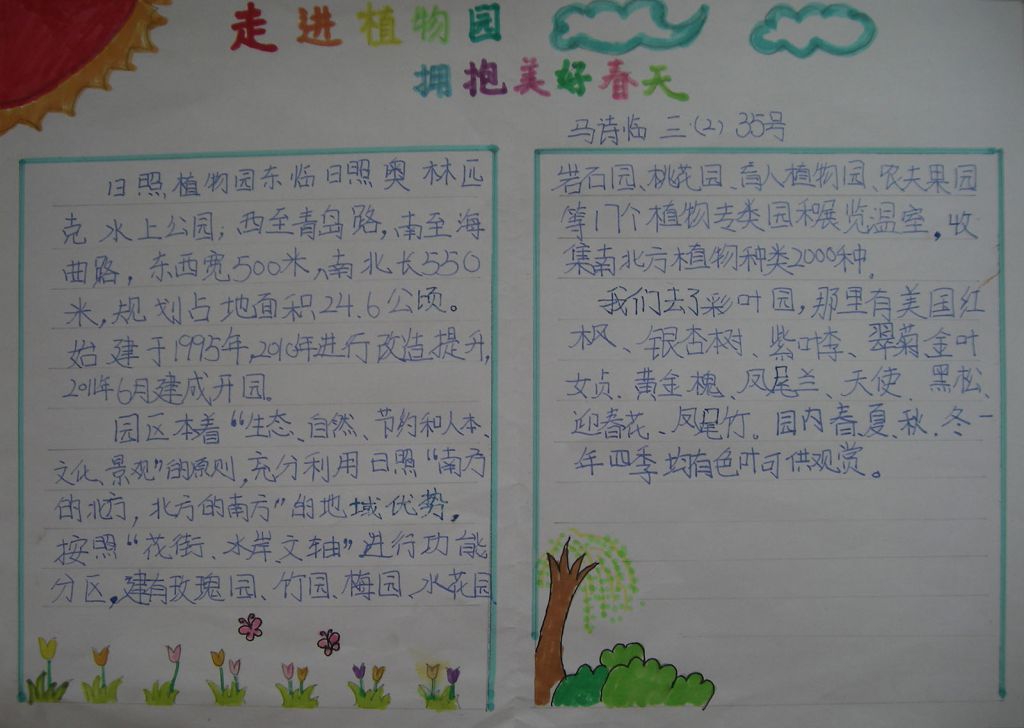 走进植物园
拥抱美好春天
马诗临 三·(2) 35号
日照植物园东临日照奥林匹
克水上公园；西至青岛路，南至海
曲路，东西宽500米、南北长550
米，规划占地面积24.6公顷。
始建于1995年，2010年进行改造提升，
2011年6月建成开园。
园区本着“生态、自然、节约和人本、
文化、景观”的原则，充分利用日照“南方
的北方，北方的南方”的地域优势，
按照“花街、水岸、文轴”进行功能
分区，建有玫瑰园、竹园、梅园、水花园、
岩石园、桃花园、育人植物园、农夫果园
等17个植物专类园和展览温室，收
集南北方植物种类2000种。
我们去了彩叶园，那里有美国红
枫、银杏树、紫叶李、翠菊、金叶
女贞、黄金槐、凤尾兰、天使、黑松、
迎春花、凤尾竹。园内春、夏、秋、冬一
年四季均有色叶可供观赏。